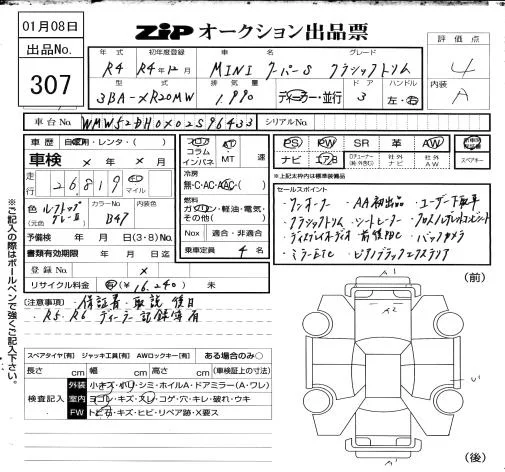 01月08日
ZIP オークション出品票
出品No.
307
評価点
4
内装
A
年式 初年度登録 車名 グレード
R4 R4年12月 MINI クーパーS クラシックトリム
型式 排気量 ドア ハンドル
3BA-XR20MW 1,990 ディーラー・並行 3 左・右
車台No. WMW52DH0X02S96433 シリアルNo.
車歴 自家用・レンタ・( )
車検 × 年 × 月 × 日
走行 26,819 マイル
フロア コラム インパネ
AT MT 速
冷房
無・C・AC・AAC・( )
燃料
ガソリン・軽油・電気・その他( )
Nox 適合・非適合
乗車定員 4 名
PS PW SR 革 AW
ナビ エアB Dチューナー(純・社外含む) 社外ナビ 社外AW スペアキー
※上記太枠内は標準装備品
色(元色) ルーフトップグレーII カラーNo. B47
予備検 年 月 日(3・8)No.
書類有効期限 年 月 日
登録No. ×
リサイクル料金 有(¥16,240) 未
セールスポイント
・ワンオーナー ・AA初出品 ・ユーザー下取車
・クラシックトリム ・シートヒーター
・ディスプレイオーディオ ・前後PDC ・バックカメラ
・ミラーETC ・ピアノブラックエクステリア
(注意事項) ・保証書・取説 後日
・R5、R6 ディーラー記録簿有
※ご記入の際はボールペンで強くご記入下さい。
スペアタイヤ【有】 ジャッキ工具【有】 AWロックキー【有】 ある場合のみ○
長さ cm 幅 cm 高さ cm (車検証上の寸法)
検査記入
外装 小キズ・小ヘコミ・シミ・ホイルA・ドアミラー(A・ワレ)
室内 ヨゴレ・キズ・スレ・コゲ・穴・キレ・破れ・ウキ
FW トビ石・キズ・ヒビ・リペア跡・X要ス
(前)
A1
A2
U1
A1
(後)